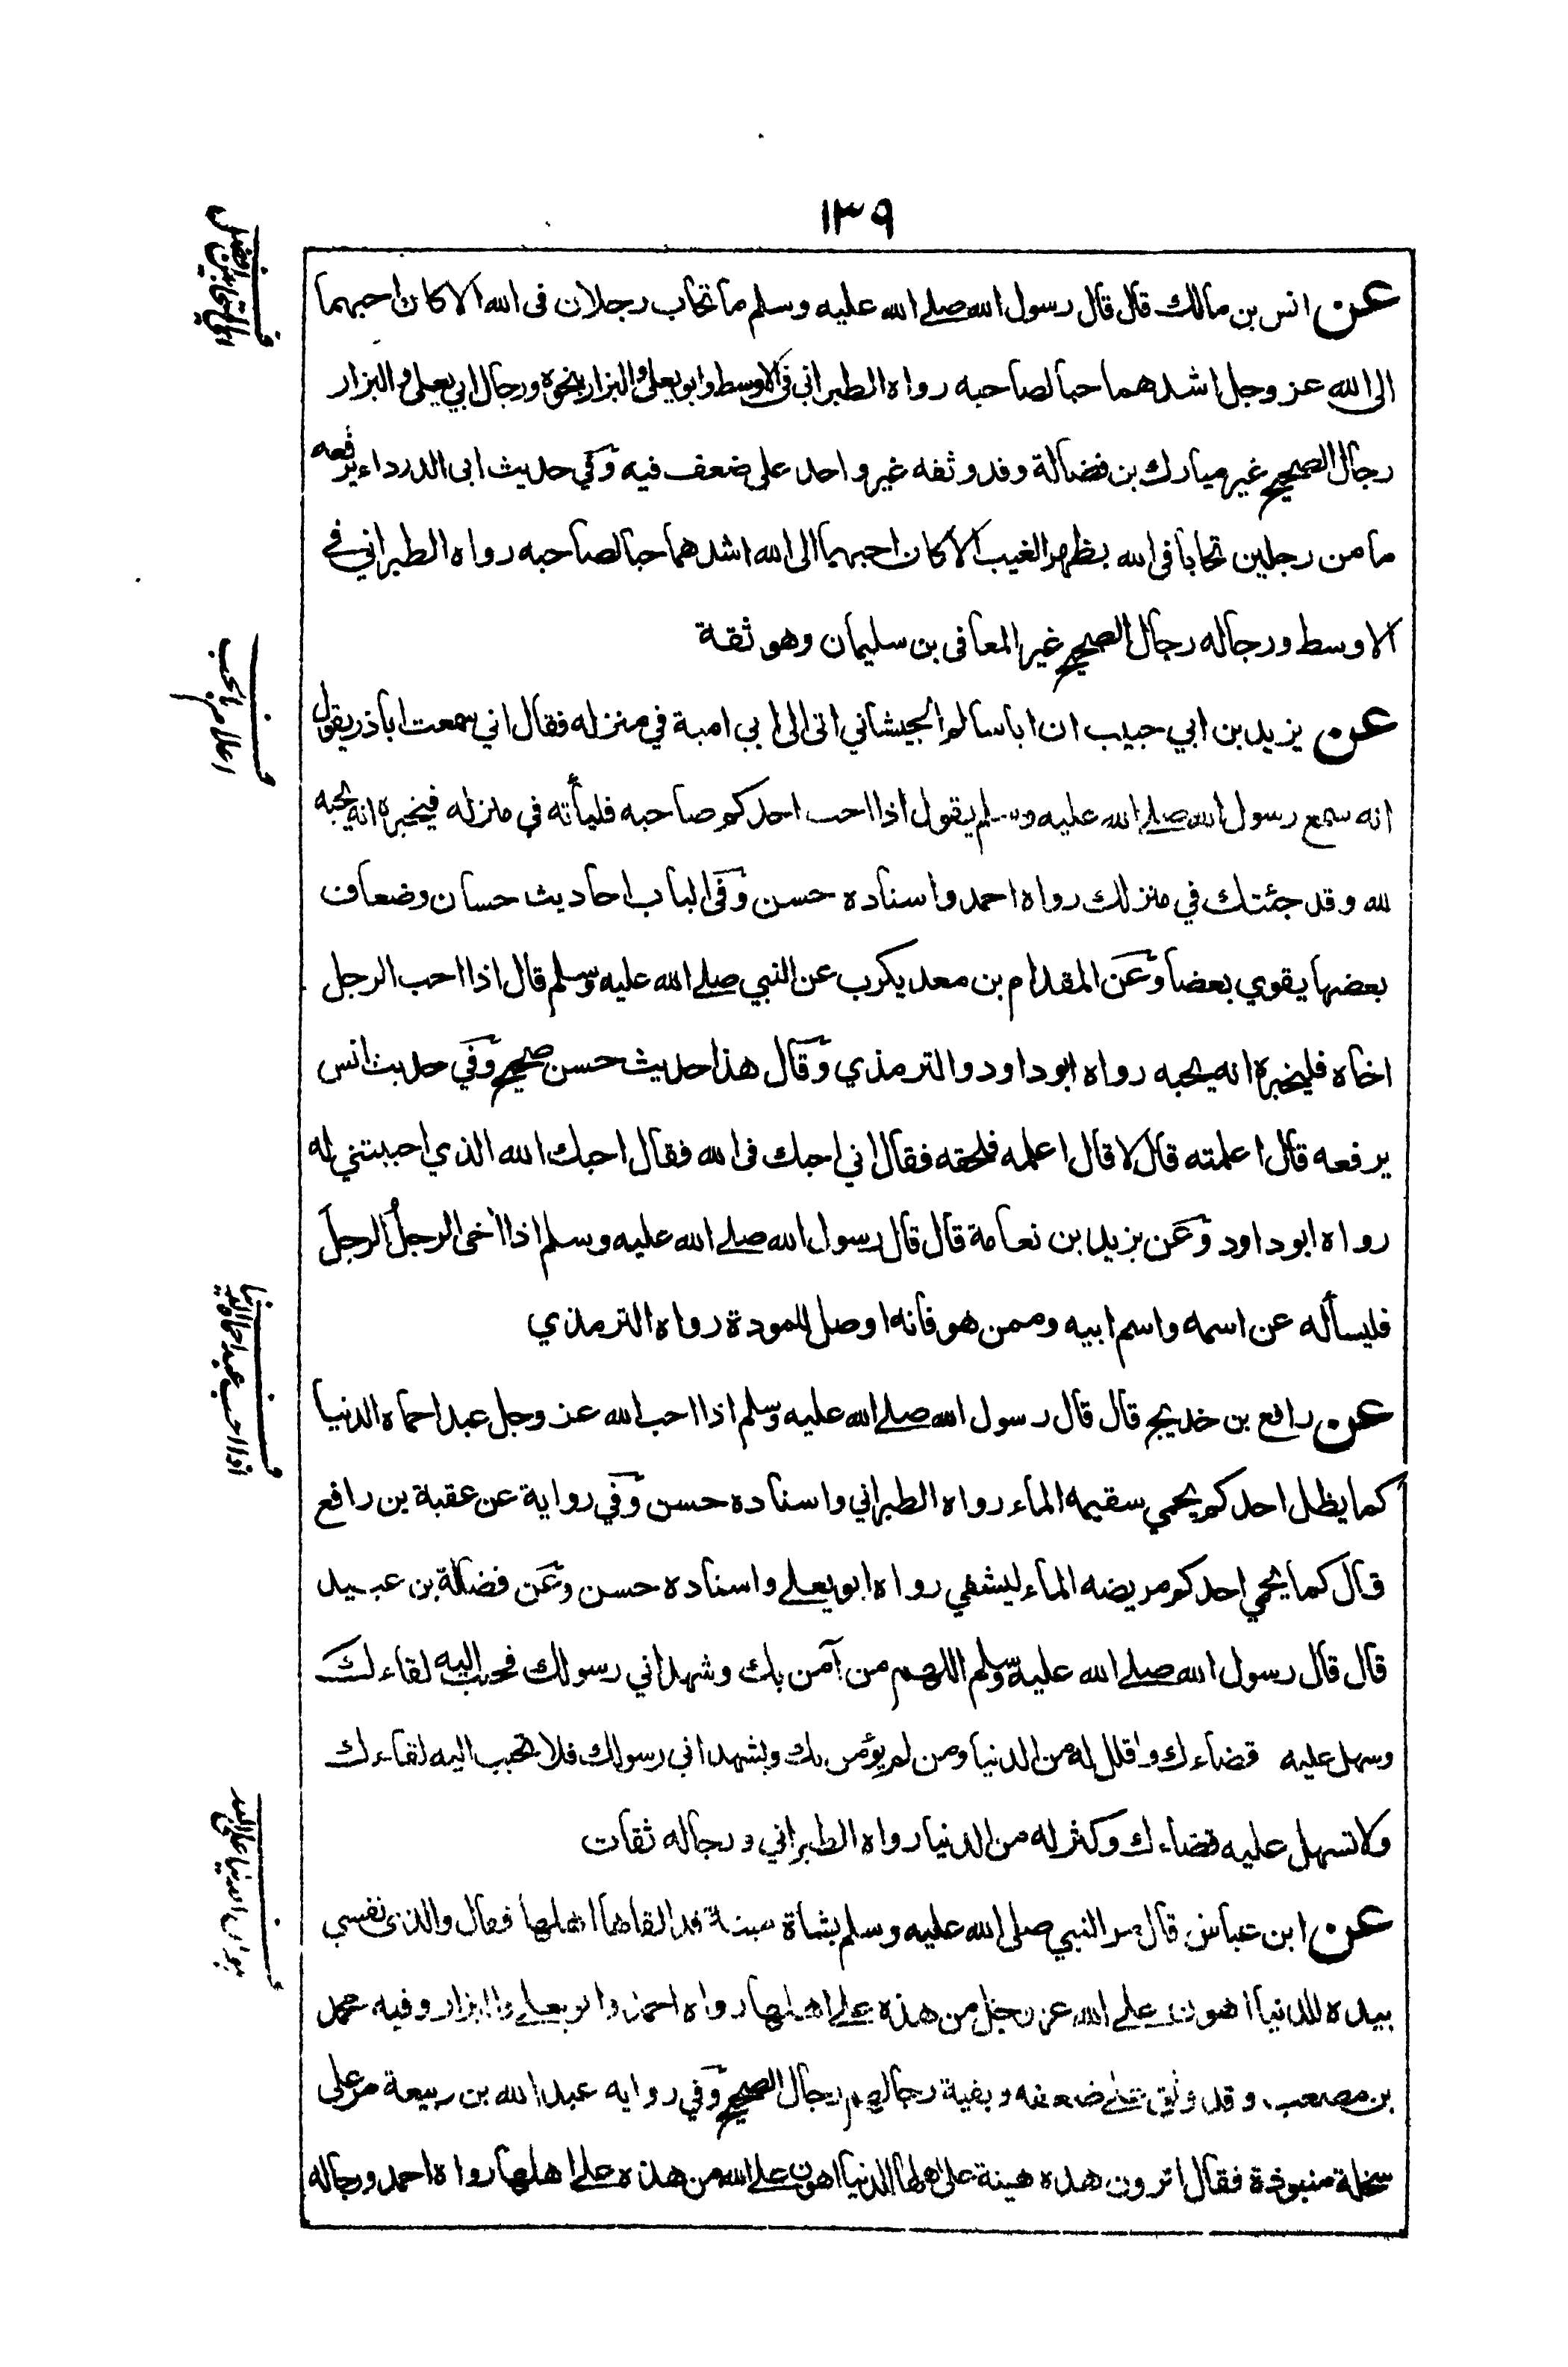 ١٣٩
عن انس بن مالك قال قال رسول الله صلے الله عليه وسلم ما تحاب رجلان فى الله الا كان احبهما
الى الله عز وجل اشدهما حبا لصاحبه رواه الطبراني فى الاوسط وابو يعلى والبزار بنحوه ورجال ابي يعلى والبزار
رجال الصحيح غير مبارك بن فضالة وقد وثقه غير واحد على ضعف فيه وفي حديث ابى الدرداء يرفعه
ما من رجلين تحابا فى الله بظهر الغيب الا كان احبهما الى الله اشدهما حبا لصاحبه رواه الطبراني في
الاوسط ورجاله رجال الصحيح غير المعافى بن سليمان وهو ثقة
عن يزيد بن ابي حبيب ان ابا سالم الجيشاني اتى الى ابي امية في منزله فقال اني سمعت ابا ذر يقول
انه سمع رسول الله صلے الله عليه وسلم يقول اذا احب احدكم صاحبه فليأته في منزله فيخبره انه يحبه
لله وقد جئتك في منزلك رواه احمد واسناده حسن وفى الباب احاديث حسان وضعاف
بعضها يقوي بعضا وعن المقدام بن معديكرب عن النبي صلے الله عليه وسلم قال اذا احب الرجل
اخاه فليخبره انه يحبه رواه ابو داود والترمذي وقال هذا حديث حسن صحيح وفي حديث انس
يرفعه قال اعلمته قال لا قال اعلمه فلحقه فقال اني احبك فى الله فقال احبك الله الذي احببتني له
رواه ابو داود وعن يزيد بن نعامة قال قال رسول الله صلے الله عليه وسلم اذا آخى الرجلُ الرجلَ
فليسأله عن اسمه واسم ابيه وممن هو فانه اوصل للمودة رواه الترمذي
عن رافع بن خديج قال قال رسول الله صلے الله عليه وسلم اذا احب الله عز وجل عبدا حماه الدنيا
كما يظل احدكم يحمي سقيمه الماء رواه الطبراني واسناده حسن وفي رواية عن عقبة بن رافع
قال كما يحمي احدكم مريضه الماء ليشفي رواه ابو يعلے واسناده حسن وعن فضالة بن عبيد
قال قال رسول الله صلے الله عليه وسلم اللهم من آمن بك وشهد اني رسولك فحبب اليه لقاءك
وسهل عليه قضاءك واقلل له من الدنيا ومن لم يؤمن بك ويشهد اني رسولك فلا تحبب اليه لقاءك
ولا تسهل عليه قضاءك وكثر له من الدنيا رواه الطبراني ورجاله ثقات
عن ابن عباس قال مر النبي صلى الله عليه وسلم بشاة ميتة قد القاها اهلها فقال والذى نفسي
بيده للدنيا اهون علے الله عز وجل من هذه علے اهلها رواه احمد وابو يعلے والبزار وفيه محمد
بن مصعب وقد وثق علے ضعفه وبقية رجالهم رجال الصحيح وفي رواية عبد الله بن ربيعة مر على
سخلة منبوذة فقال اترون هذه هينة على اهلها الدنيا اهون علے الله من هذه علے اهلها رواه احمد ورجاله
اعلام من احب
اذا احب عبدا حماه الدنيا
هوان الدنيا على الله